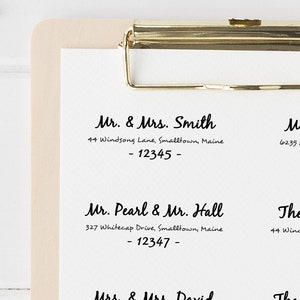 Mr. & Mrs. Smith
44 Windsong Lane, Smalltown, Maine
- 12345 -
M
6235
Mr. Pearl & Mr. Hall
327 Whitecap Drive, Smalltown, Maine
- 12347 -
The
44 Win
Mr. & Mrs. David
The